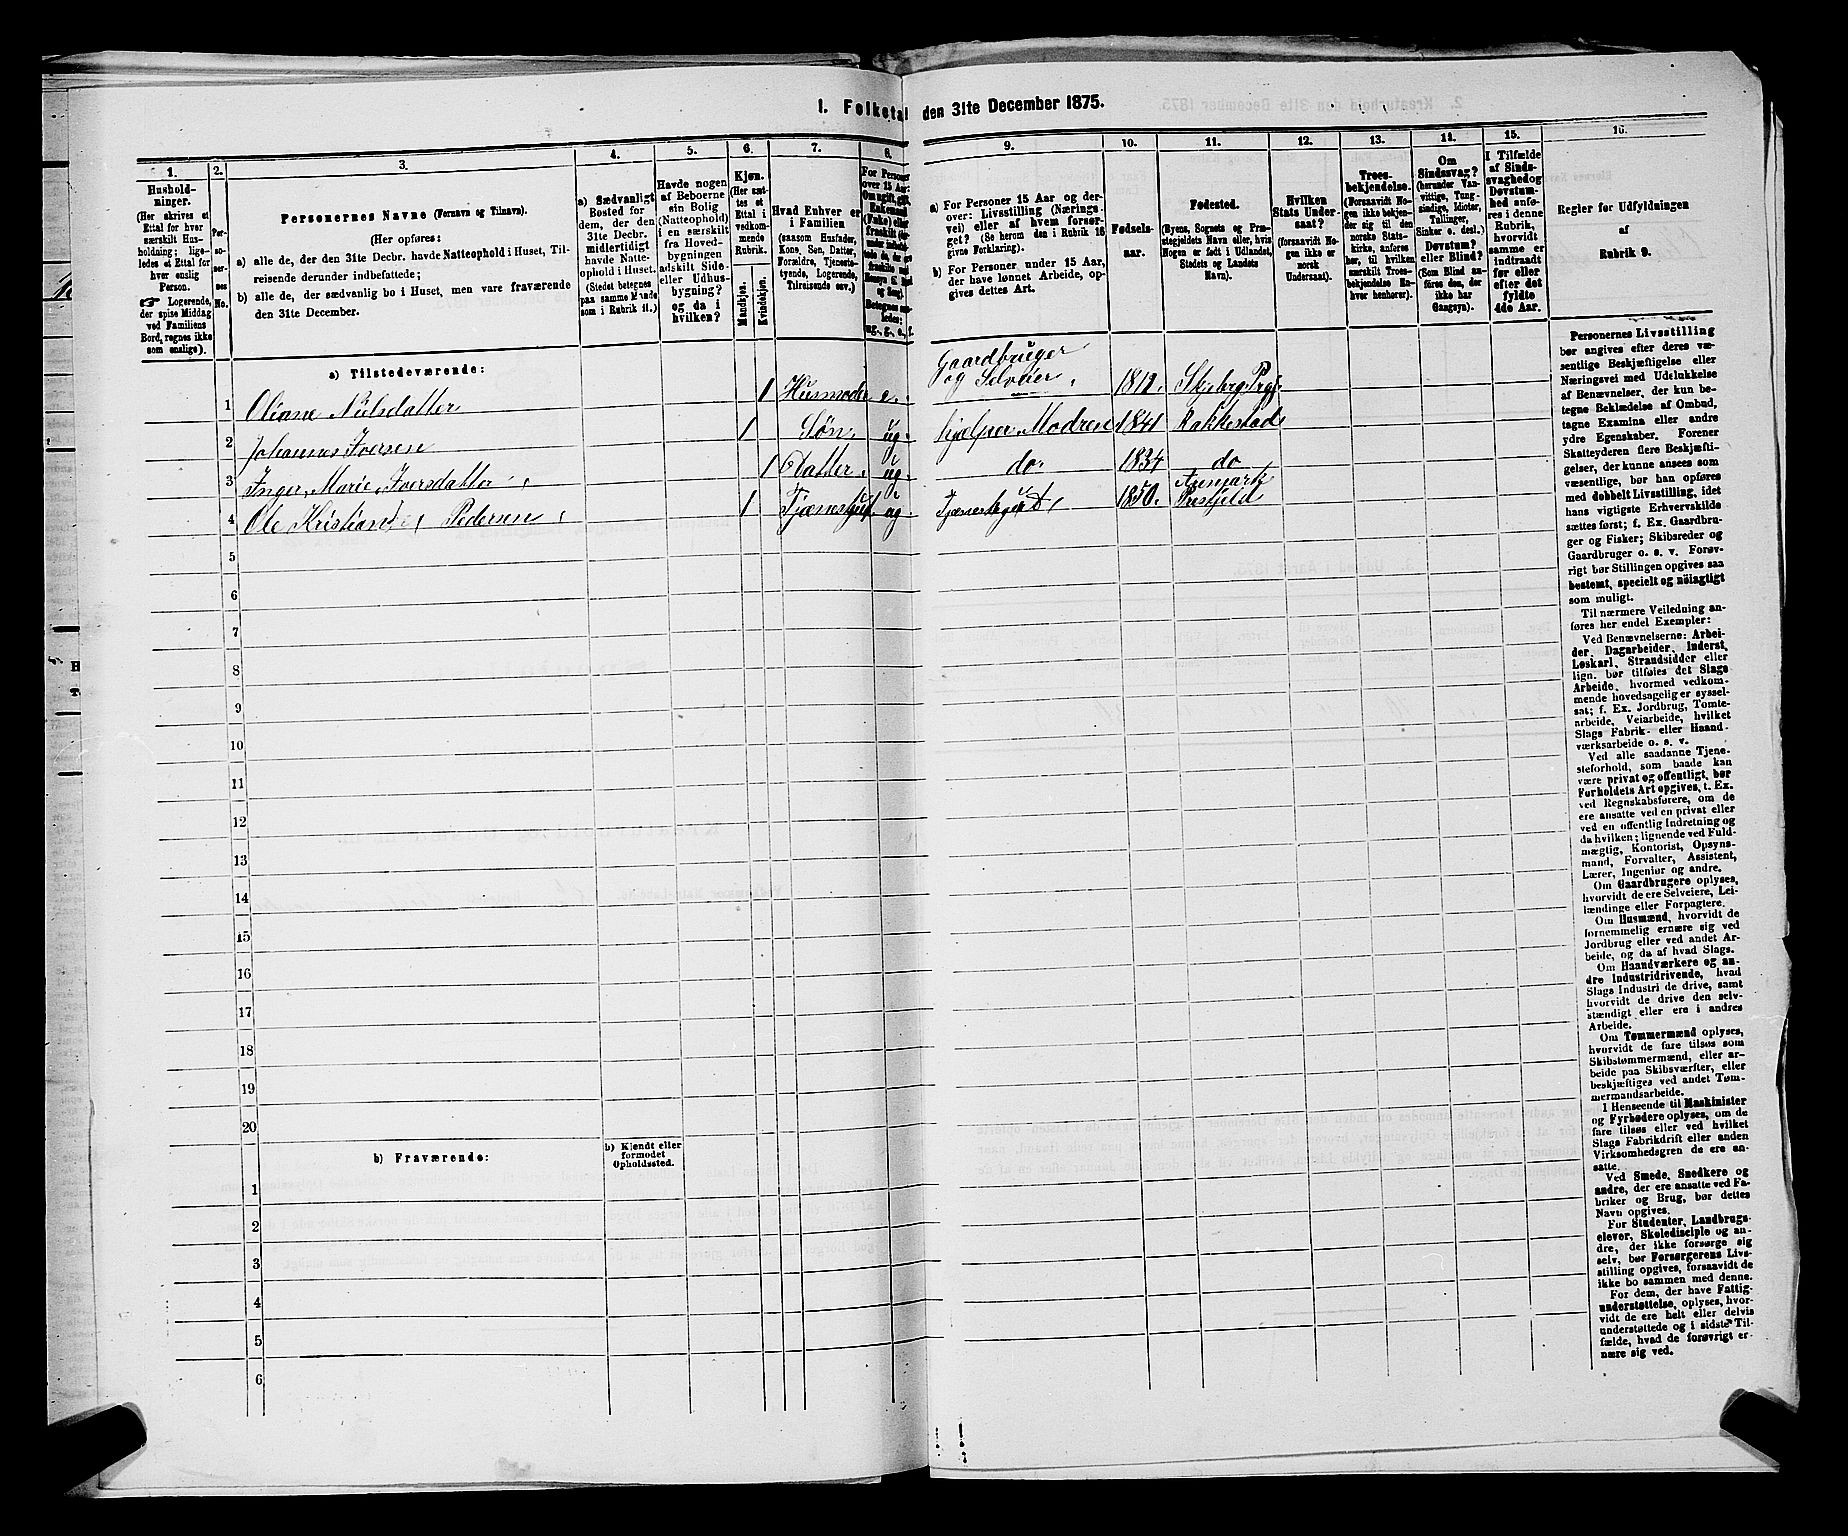 1. Folketal den 31te December 1875.
1.
Hushold-
ninger.
(Her skrives et
Ettal for hver
særskilt Hus-
holdning; lige-
ledes et Ettal for
hver enslig
Person.
☞ Logerende,
der spise Middag
ved Familiens
Bord, regnes ikke
som enslige).
2.
Per-
so-
ner-
nes
No.
3.
Personernes Navne (Fornavn og Tilnavn).
(Her opføres:
a) alle de, der den 31te Decbr. havde Natteophold i Huset, Til-
reisende derunder indbefattede;
b) alle de, der sædvanlig bo i Huset, men vare fraværende
den 31te December.
4.
a) Sædvanligt
Bosted for
dem, der den
31te Decbr.
midlertidigt
havde Natte-
ophold i Huset.
(Stedet betegnes
paa samme Maade
som i Rubrik 11.)
5.
Havde nogen
af Beboerne
sin Bolig
(Natteophold)
i en særskilt
fra Hoved-
bygningen
adskilt Side-
eller Udhus-
bygning?
og da i
hvilken?
6.
Kjøn.
(Her sæt-
tes et
Ettal i
vedkom-
mende
Rubrik.
Mandkjøn.
Kvindekjøn.
7.
Hvad Enhver er
i Familien
(saasom Husfader,
Kone, Søn, Datter,
Forældre, Tjeneste-
tyende, Logerende,
Tilreisende osv.)
8.
For Personer
over 15 Aar:
9.
a) For Personer 15 Aar og der-
over: Livsstilling (Nærings-
vei) eller af hvem forsør-
get? (Se herom den i Rubrik 16
givne Forklaring).
b) For Personer under 15 Aar,
der have lønnet Arbeide, op-
gives dettes Art.
10.
Fødsels-
aar.
11.
Fødested.
(Byens, Sognets og Præ-
stegjeldets Navn eller, hvis
Nogen er født i Udlandet,
Stedets og Landets
Navn).
12.
Hvilken
Stats Under-
saat?
(forsaavidt No-
gen ikke er
norsk
Undersaat).
13.
Troes-
bekjendelse.
(Forsaavidt No-
gen ikke bekjen-
der sig til den
norske Stats-
kirke, anføres
her, til hvilken
særskilt Troes-
bekjendelse Ha-
hver henhører).
14.
Om
Sindssvag?
(herunder Van-
vittige, Tung-
sindige, Idioter,
Tullinger,
Sinker o. desl.)
Døvstum?
eller Blind?
(Som Blind an-
føres den, der
ikke har
Gangsyn).
15.
I Tilfælde
af Sinds-
svaghed og
Døvstum-
hed anfø-
res i denne
Rubrik,
hvorvidt
samme er
indtraadt
før eller
efter det
fyldte
4de Aar.
16.
Regler for Udfyldningen
af
Rubrik 9.
a) Tilstedeværende:
1 Oliane Nielsdatter 1 Husmoder e. Gaardbruger
og Selveier 1812. Skjeberg Prgj
2 Johannes Iversen 1 Søn ug. hjælper Modren 1841 Rakkestad
3 Inger Marie Iversdatter 1 Datter ug. do. 1834 do
4 Ole Kristian Pedersen 1 ug. 1850. Aremark
Presjeld
5
6
7
8
9
10
11
12
13
14
15
16
17
18
19
20
b) Fraværende:
b) Kjendt eller
formodet
Opholdssted.
1
2
3
4
5
6
Personernes Livsstilling
bør angives efter deres væ-
sentlige Beskjæftigelse eller
Næringsvei med Udelukkelse
af Benævnelser, der kun be-
tegne Beklædelse af Ombud,
tagne Examina eller andre
ydre Egenskaber. Forener
Skatteyderen flere Beskjæfti-
gelser, der kunne ansees som
væsentlige, bør han opføres
med dobbelt Livsstilling, idet
hans vigtigste Erhvervskilde
sættes først; f. Ex. Gaardbru-
ger og Fisker; Skibsreder og
Gaardbruger o. s. v. Forøv-
rigt bør Stillingen opgives saa
bestemt, specielt og nöiagtigt
som muligt.
Til nærmere Veiledning an-
føres her endel Exempler:
Ved Benævnelserne: Arbei-
der, Dagarbeider, Inderst,
Løskarl, Strandsidder eller
lign. bør tilføies det Slags
Arbeide, hvormed vedkom-
mende hovedsagelig er syssel-
sat; f. Ex. Jordbrug, Tomte-
arbeide, Veiarbeide, hvilket
Slags Fabrik- eller Haand-
værksarbeide o. s. v.
Ved alle saadanne Tjene-
steforhold, som baade kan
være privat og offentligt, bør
Forholdets Art opgives, t. Ex.
ved Regnskabsførere, om de
ere ansatte ved en privat eller
ved en offentlig Indretning og
da hvilken; lignende ved Fuld-
mægtig, Kontorist, Opsyns-
mand, Forvalter, Assistent,
Lærer, Ingeniør og andre.
Om Gaardbrugere oplyses,
hvorvidt de ere Selveiere, Lei-
lændinge eller Forpagtere.
Om Husmænd, hvorvidt de
fornemmelig ernære sig ved
Jordbrug eller ved andet Ar-
beide, og da af hvad Slags.
Om Haandværkere og an-
dre Industridrivende, hvad
Slags Industri de drive, samt
hvorvidt de drive den selv-
stændigt eller ere i andres
Arbeide.
Om Tømmermænd oplyses,
hvorvidt de fare tilsøs som
Skibstømmermænd, eller ar-
beide paa Skibsværfter, eller
beskjæftiges ved andet Tøm-
mermandsarbeide.
I Henseende til Maskinister
og Fyrbødere oplyses, om de
fare tilsøs eller ved hvilket
Slags Fabrikdrift eller anden
Virksomhedsgren de ere an-
satte.
Ved Smede, Snedkere og
andre, der ere ansatte ved Fa-
briker og Brug, bør dettes
Navn opgives.
For Studenter, Landbrugs-
elever, Skoledisciple og an-
dre, der ikke forsørge sig
selv, bør Forsørgerens Livs-
stilling opgives, forsaavidt de
ikke bo sammen med denne.
For dem, der have Fattig-
understøttelse, oplyses, hvor-
vidt de ere helt eller delvis
understøttede og i sidste Til-
fælde, hvad de forøvrigt er-
nære sig ved.